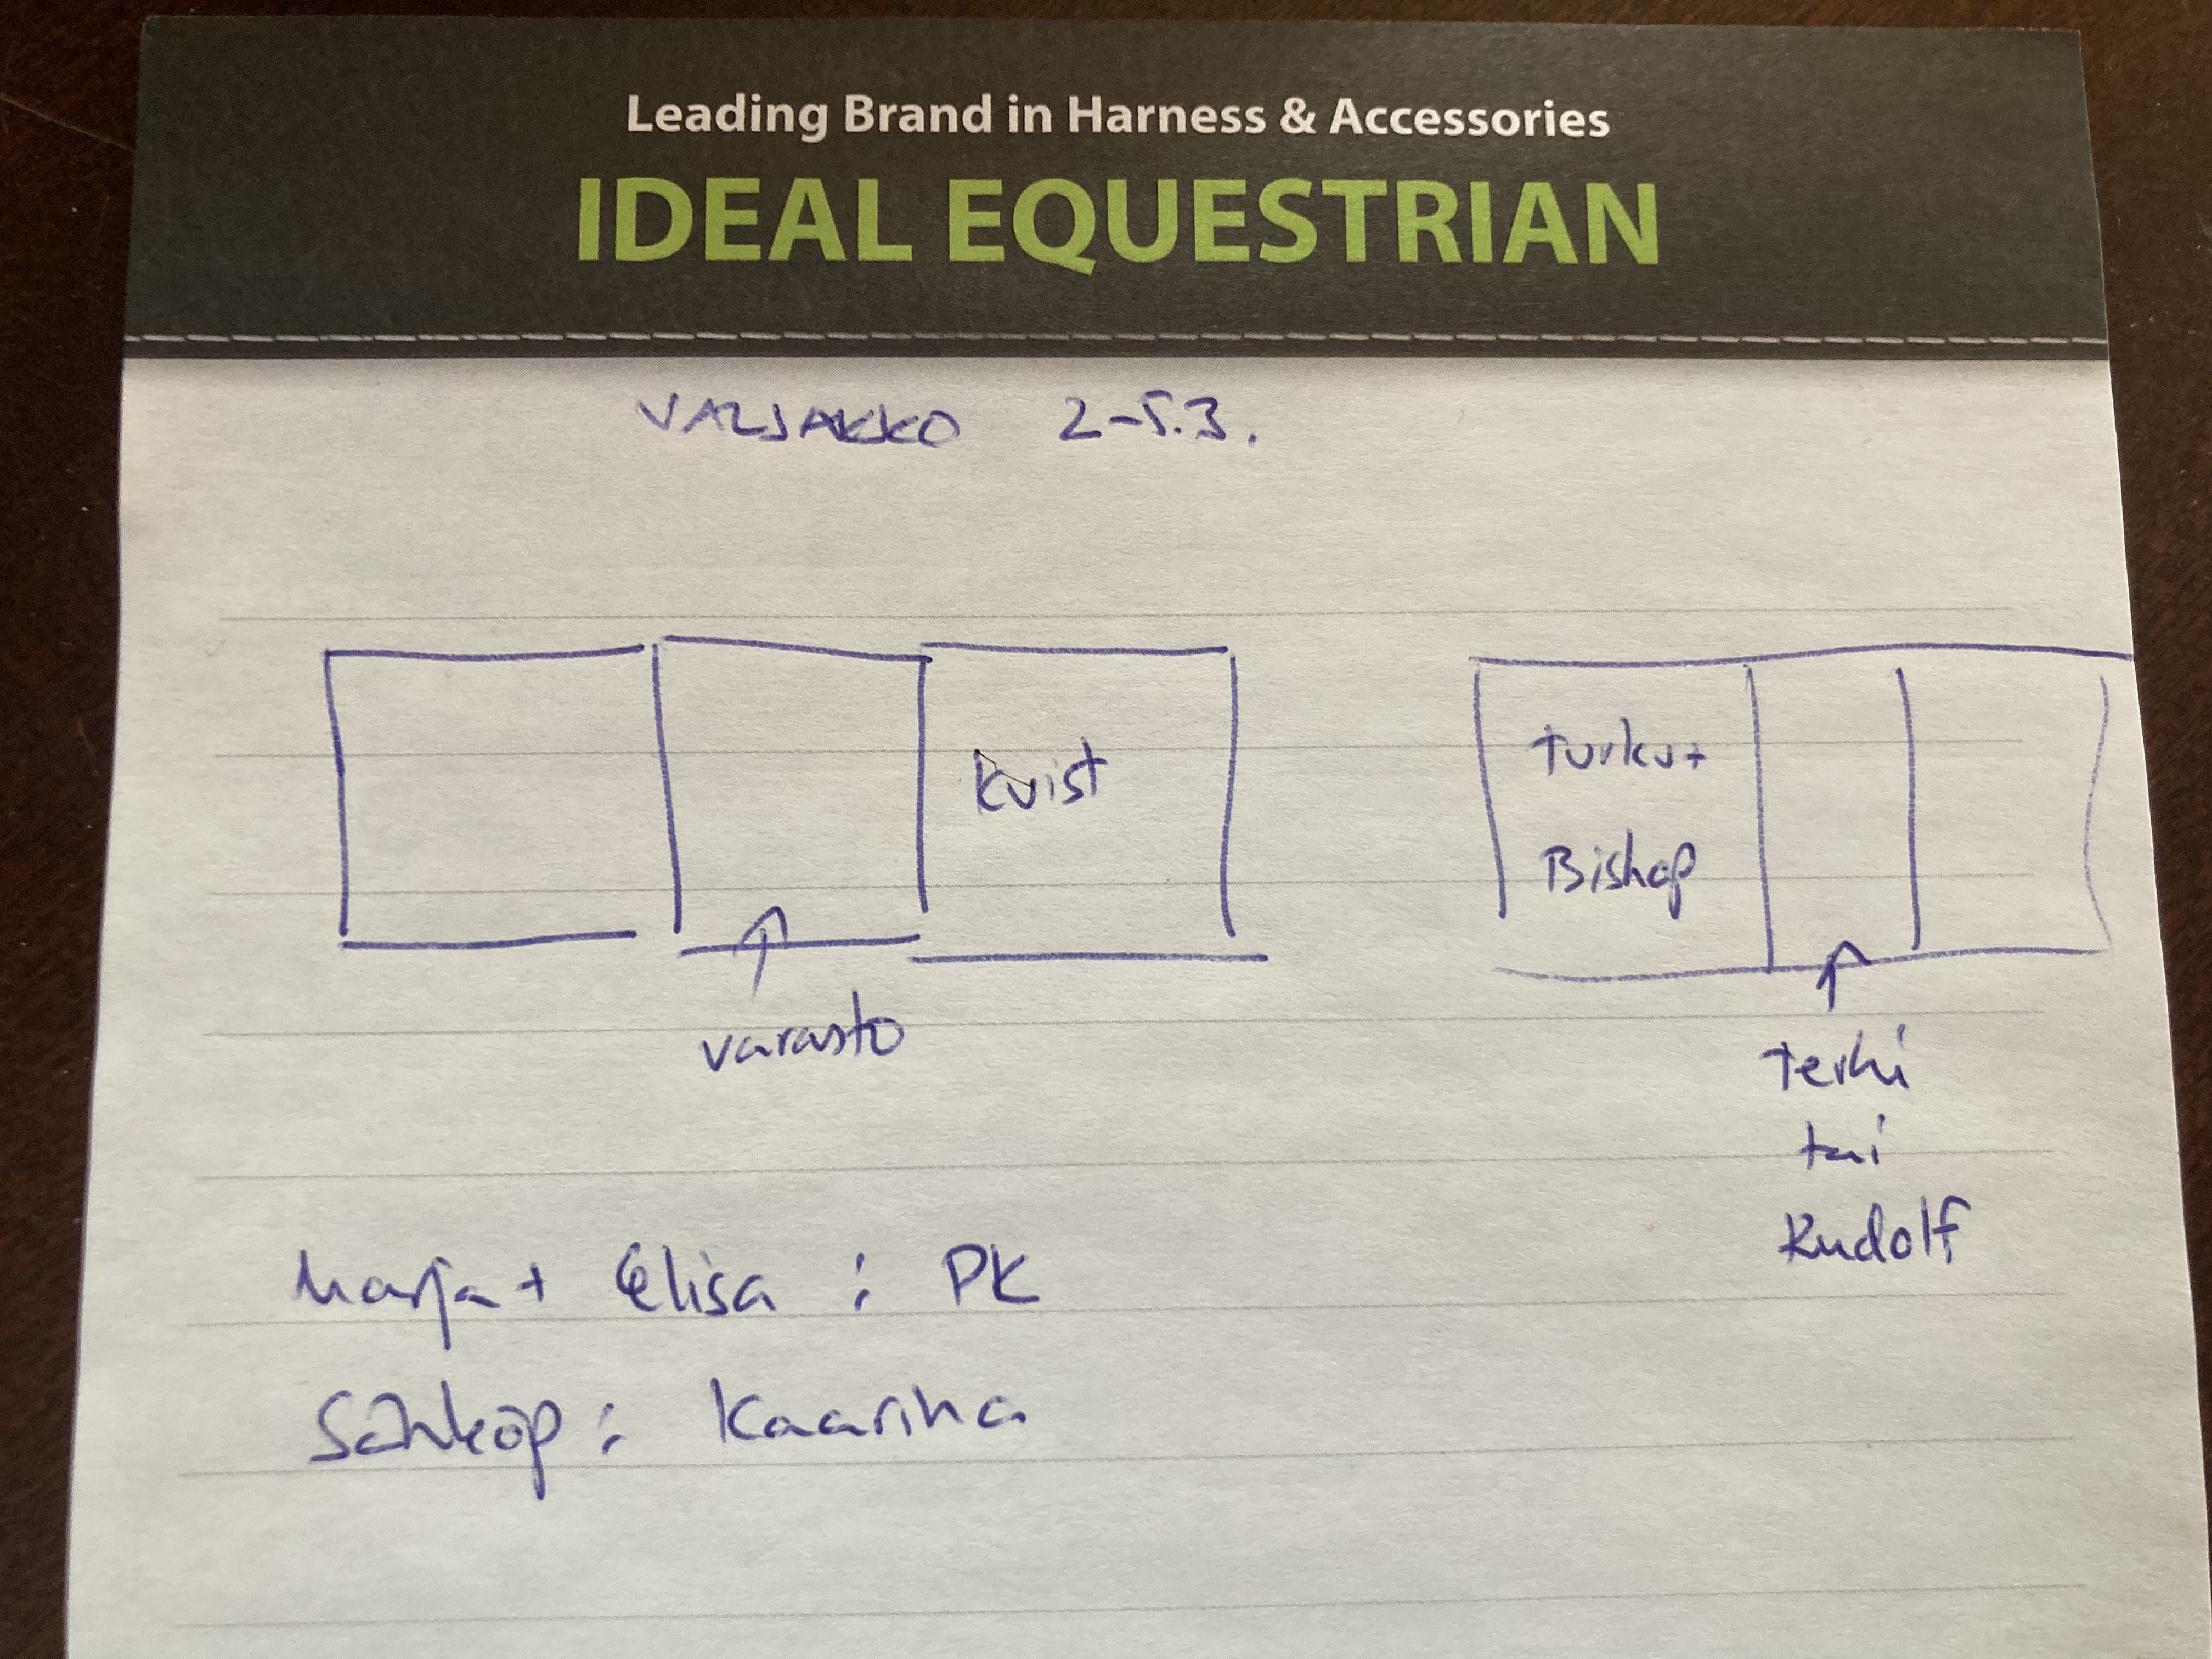 Leading Brand in Harness & Accessories
IDEAL EQUESTRIAN
VALJAKKO 2-5.3.
Kvist
Turku+
Bishop
varasto
Terhi
tai
Rudolf
Marja + Elisa : PK
Sähköp : Kaarina